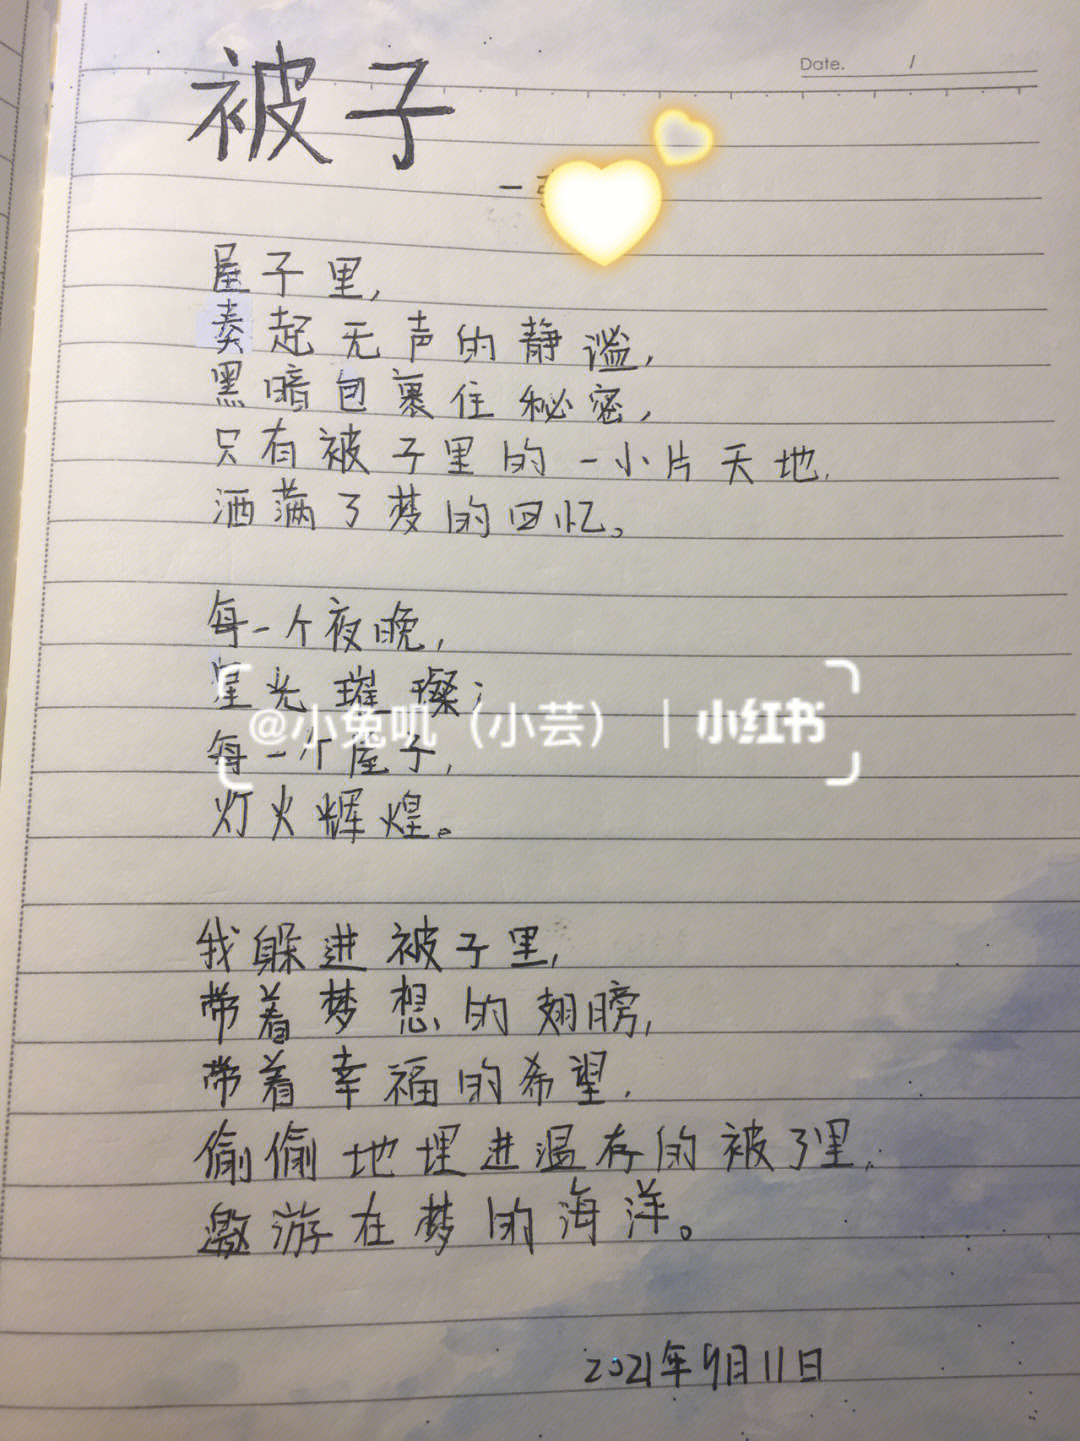 Date. /
被子
屋子里,
奏起无声的静谧,
黑暗包裹住秘密,
只有被子里的一小片天地.
洒满了梦的回忆。
每一个夜晚,
星光璀璨;
@小兔叽（小芸）｜小红书
每一个屋子,
灯火辉煌。
我躲进被子里,
带着梦想的翅膀,
带着幸福的希望.
偷偷地埋进温存的被子里,
遨游在梦的海洋。
2021年9月11日